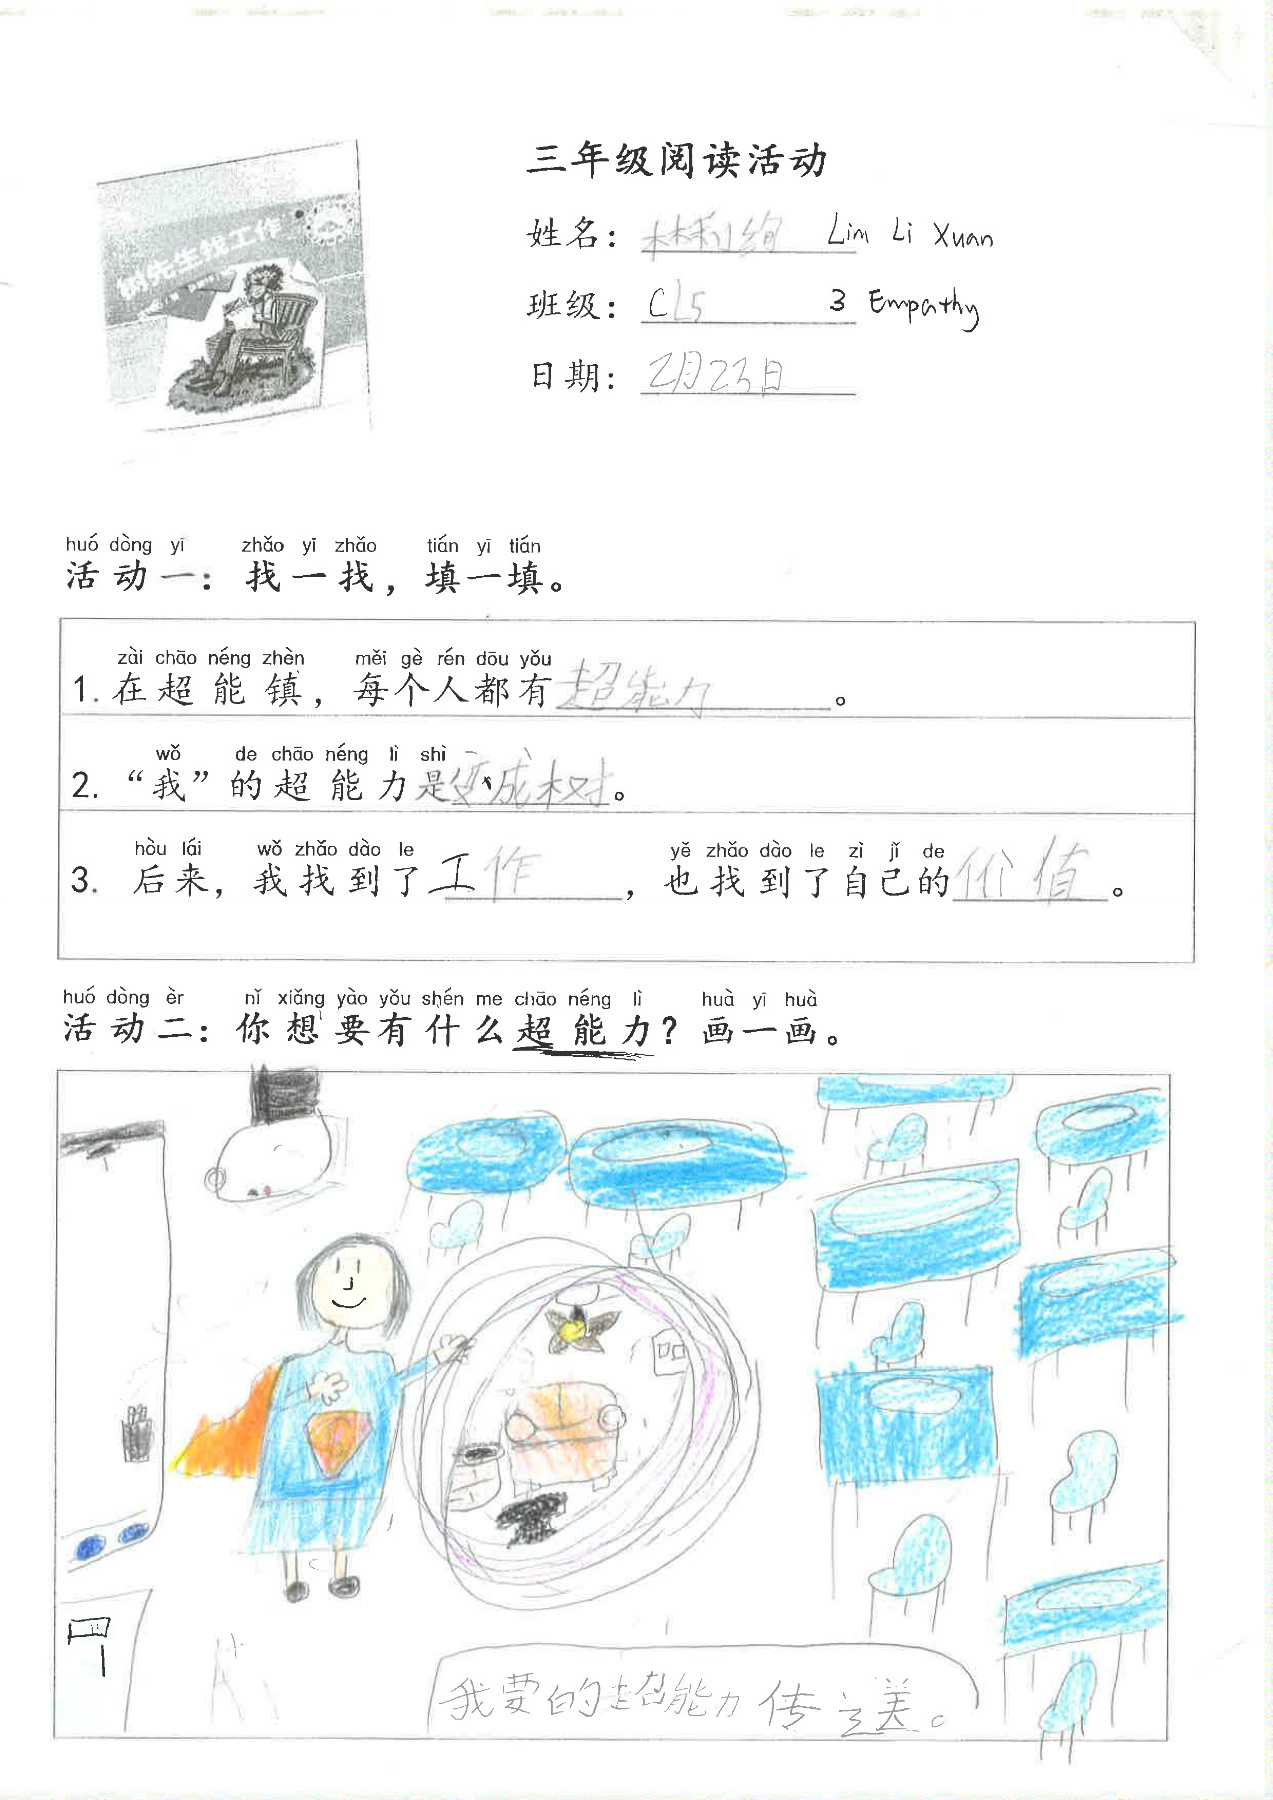 三年级阅读活动
找工作
姓名：林利绚 Lim Li Xuan
班级：CL5 3 Empathy
日期：2月23日
huó dòng yī zhǎo yī zhǎo tián yī tián
活动一：找一找，填一填。
zài chāo néng zhèn měi gè rén dōu yǒu
1. 在超能镇，每个人都有超能力。
wǒ de chāo néng lì shì
2. “我”的超能力是变成树。
hòu lái wǒ zhǎo dào le yě zhǎo dào le zì jǐ de
3. 后来，我找到了工作，也找到了自己的价值。
huó dòng èr nǐ xiǎng yào yǒu shén me chāo néng lì huà yī huà
活动二：你想要有什么超能力？画一画。
我要的超能力传送。